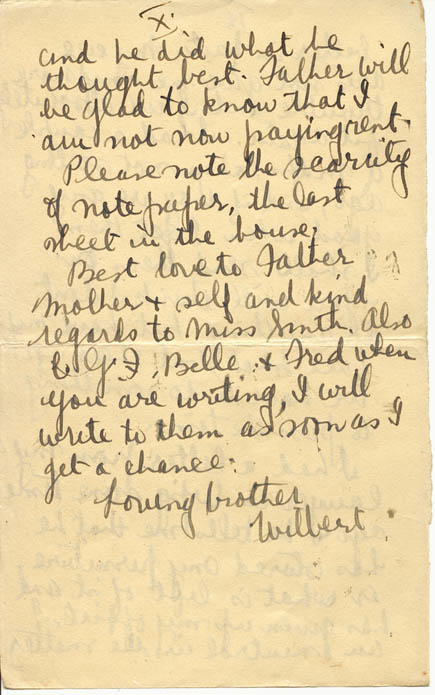 X.
and he did what he
thought best. Father will
be glad to know that I
am not now paying rent.
Please note the scarcity
of notepaper, the last
sheet in the house.
Best love to Father
Mother & self and kind
regards to Miss Smith. Also
Belle & Fred when
you are writing, I will
write to them as soon as I
get a chance.
Loving brother
Wilbert.